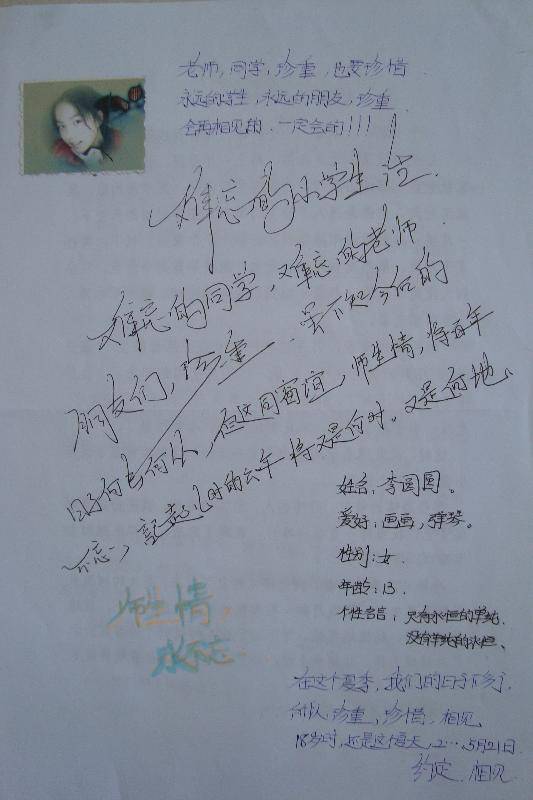 老师,同学,珍重,也要珍惜
永远的学生,永远的朋友,珍重
会再相见的.一定会的!!!
难忘的小学生活.
难忘的同学,难忘的老师
朋友们,珍重.虽不知今后的
日子何去何从,但这同窗谊,师生情,将百年
不忘,记起儿时的六年将又是何时。又是何地、
姓名:李圆圆。
爱好:画画,弹琴。
性别:女.
年龄:13.
个性名言:只有永恒的单纯.
没有单纯的永恒、
师生情,
永不忘
在这个夏季,我们的日子不多了,
珍重,珍惜,相见
18岁时,还是这个夏天,2…,5月21日
约定.相见